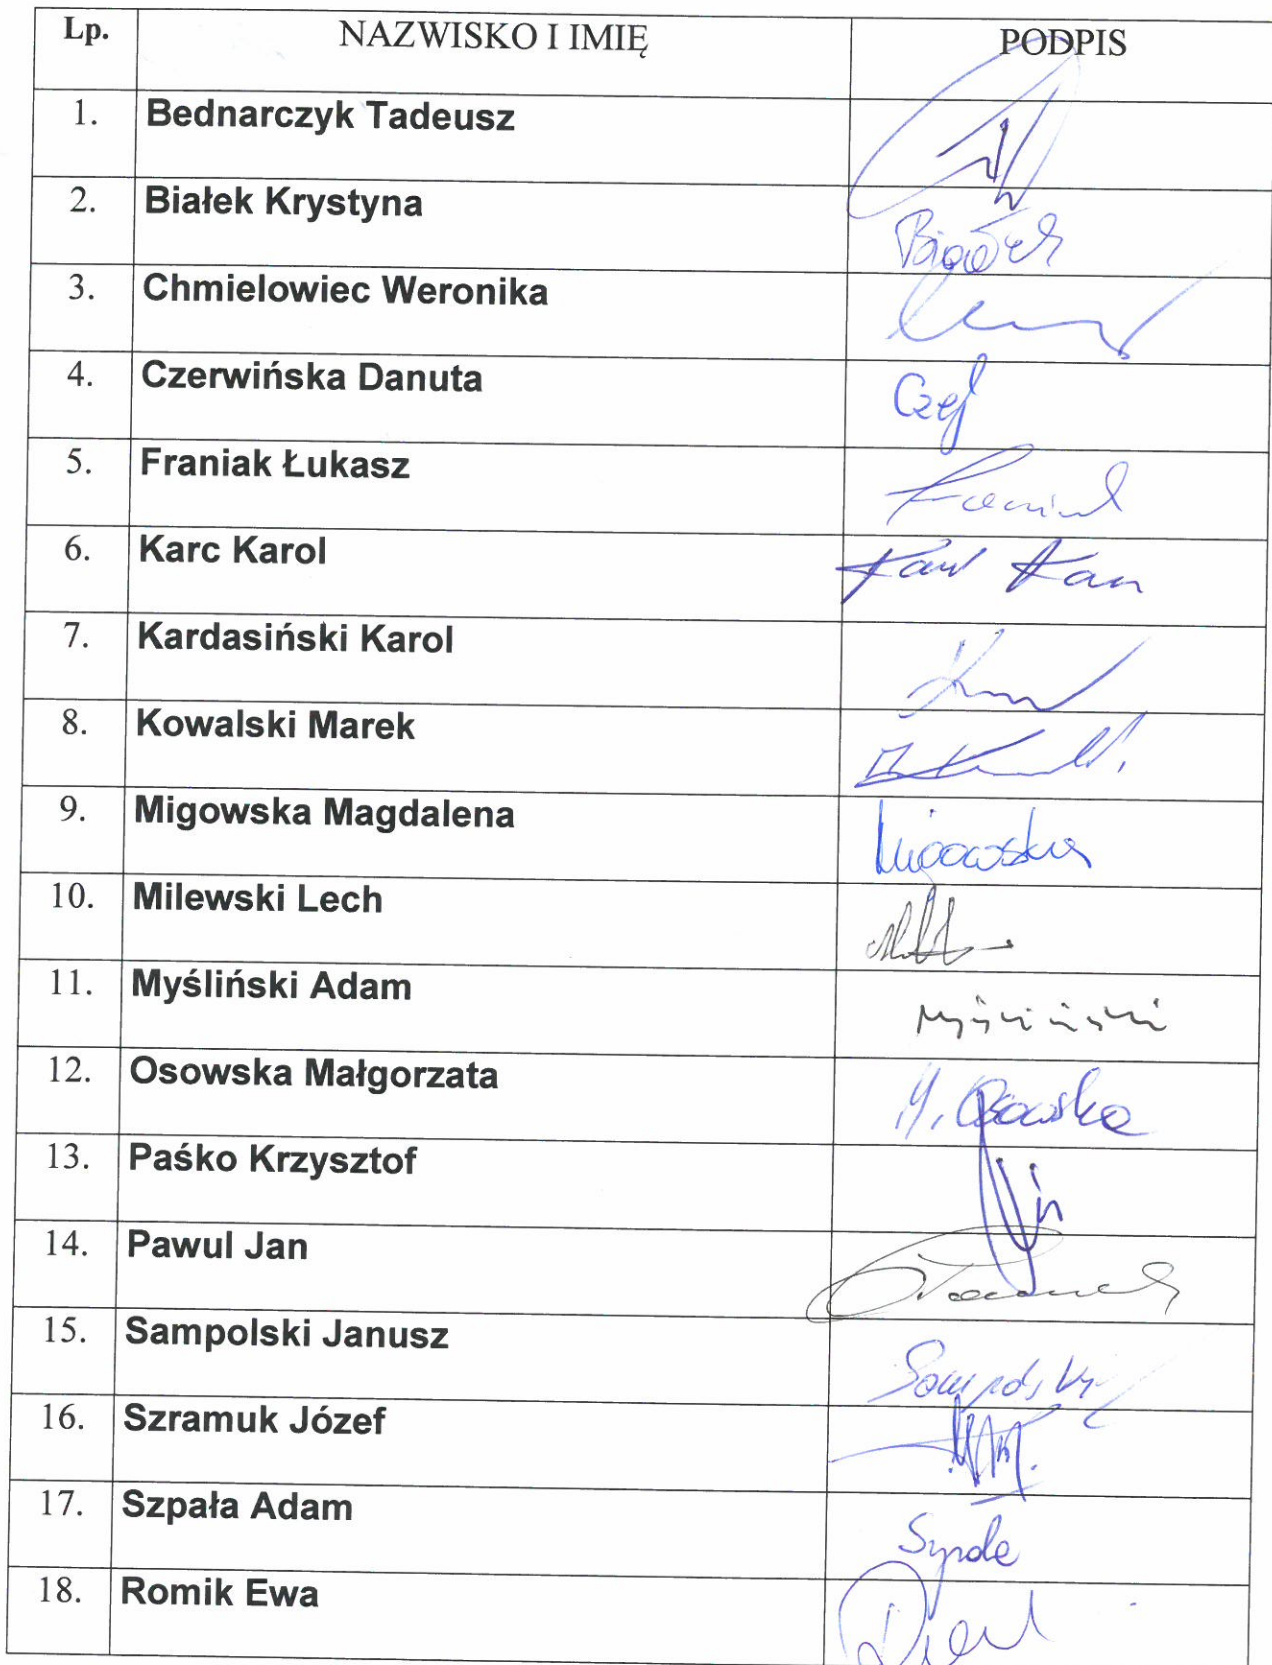 Lp. NAZWISKO I IMIĘ PODPIS
1. Bednarczyk Tadeusz
2. Białek Krystyna Białek
3. Chmielowiec Weronika
4. Czerwińska Danuta
5. Franiak Łukasz Franiak
6. Karc Karol Karol Karc
7. Kardasiński Karol
8. Kowalski Marek
9. Migowska Magdalena Migowska
10. Milewski Lech
11. Myśliński Adam Myśliński
12. Osowska Małgorzata M. Osowska
13. Paśko Krzysztof
14. Pawul Jan
15. Sampolski Janusz Sampolski
16. Szramuk Józef
17. Szpała Adam
18. Romik Ewa